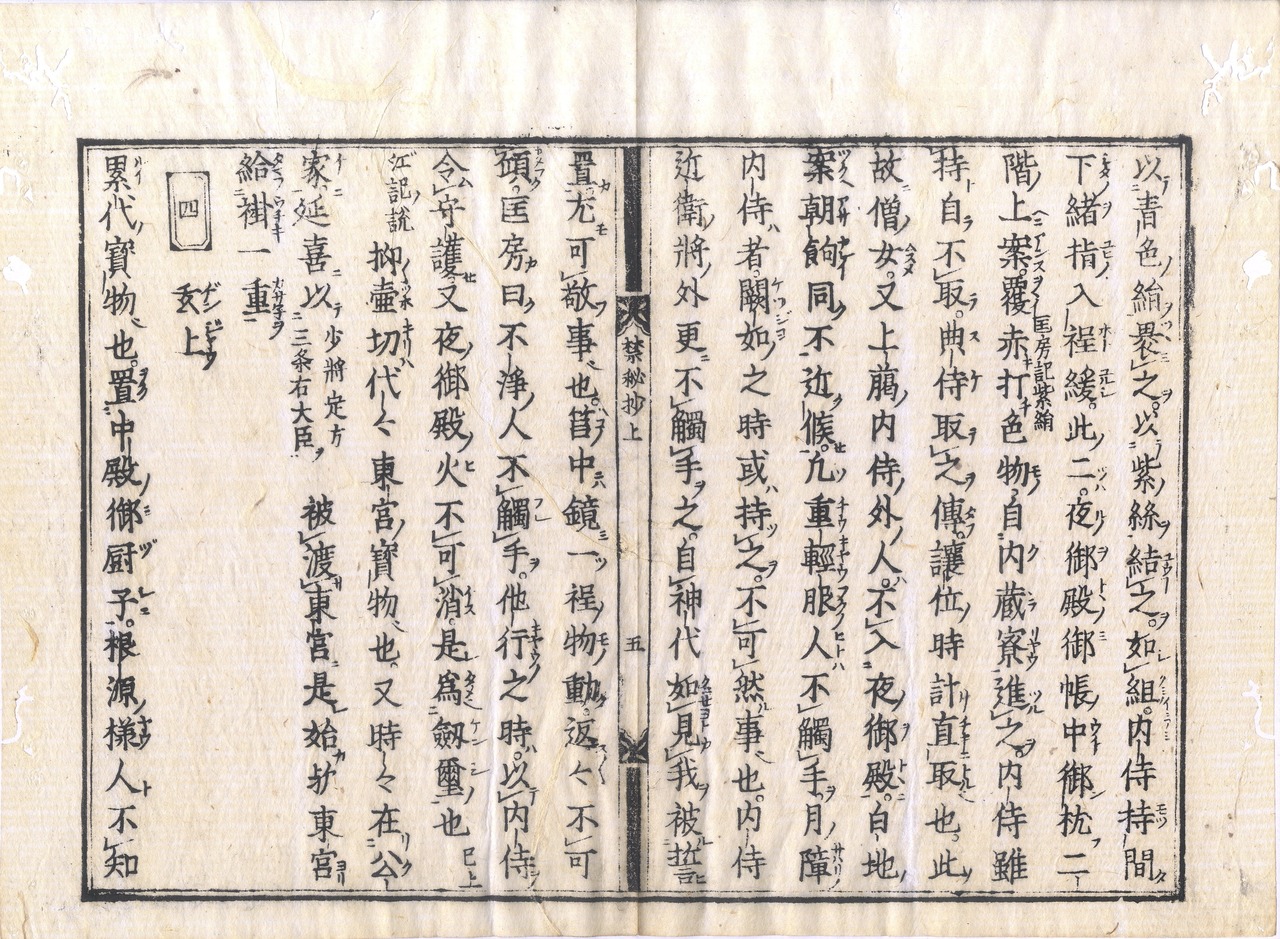 以青色絹裹之。以紫絲結之。如組。内侍持間
下緒指入裎緩。此二。夜御殿御帳中御枕二
階上案。覆赤打色物。自内蔵寮進之。内侍雖
匡房記紫絹
持自不取。典侍取之傳。讓位時計直取也。此
故僧女。又上﨟内侍外人。不入夜御殿。白地
案朝餉同不近候。凢重輕服人不觸手。月障
内侍者。闕如之時或持之。不可然事也。内侍
近衛將外更不觸手之。自神代如見我被誓
禁秘抄上
五
置尤可敬事也。筥中鏡一裎物動。返々不可
頎。匡房曰不淨人不觸手。他行之時。以内侍
令守護。又夜御殿火不可消。是爲劔璽也 已上
江記説 抑壷切代々東宮寶物也。又時々在公
家。延喜以 少將定方三条右大臣 被渡東宮是始於東宮
給褂一重
四 玄上
累代寶物也。置中殿御厨子。根源様人不知